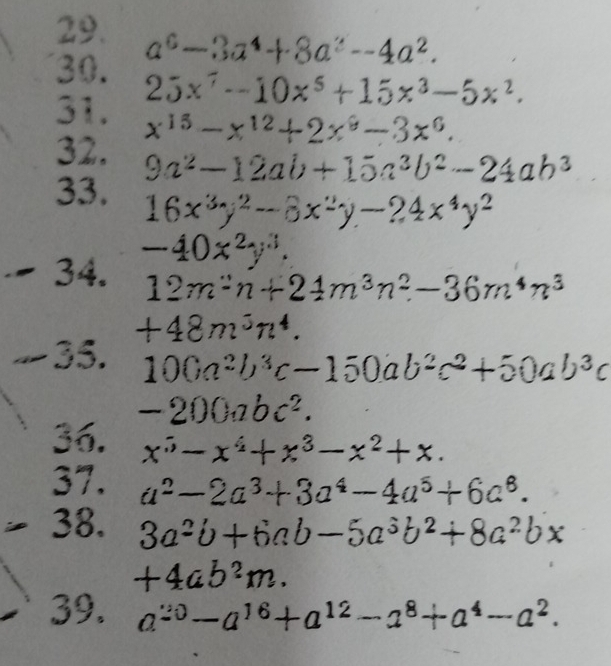 29. a⁶−3a⁴+8a³−4a².
30. 25x⁷−10x⁵+15x³−5x².
31. x¹⁵−x¹²+2x⁹−3x⁶.
32. 9a²−12ab+15a³b²−24ab³
33. 16x³y²−8x²y−24x⁴y²
−40x²y³.
34. 12m²n+24m³n²−36m⁴n³
+48m⁵n⁴.
35. 100a²b³c−150ab²c²+50ab³c
−200abc².
36. x⁵−x⁴+x³−x²+x.
37. a²−2a³+3a⁴−4a⁵+6a⁶.
38. 3a²b+6ab−5a³b²+8a²bx
+4ab²m.
39. a²⁰−a¹⁶+a¹²−a⁸+a⁴−a².